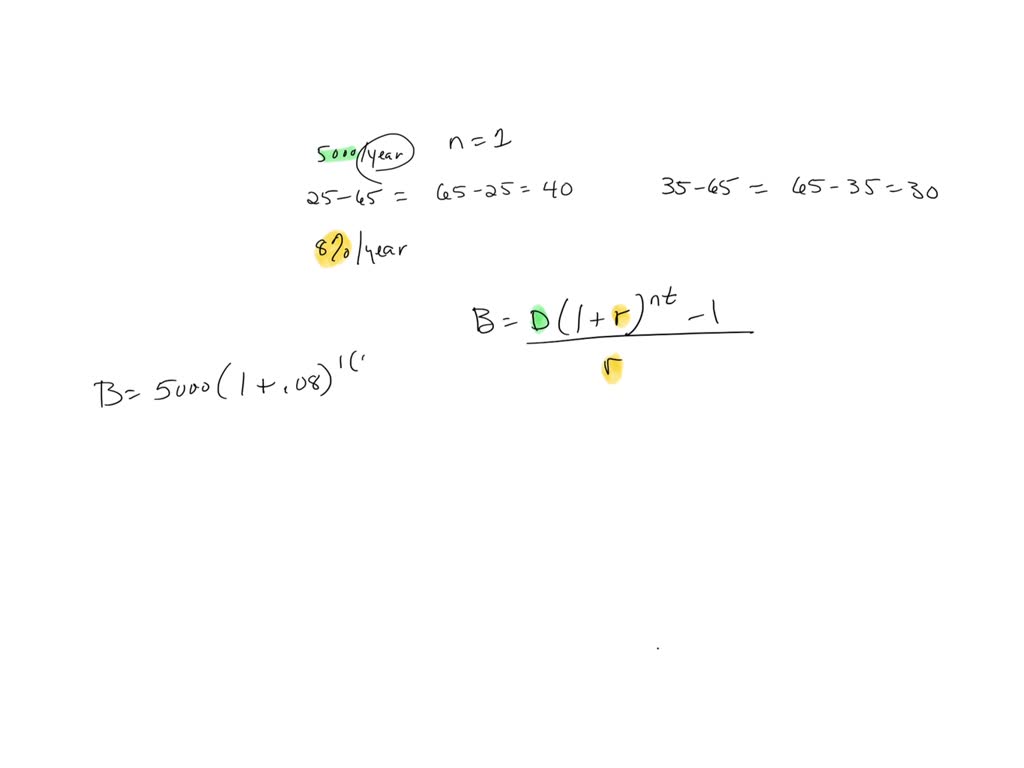 5000/year n = 1
25-65 = 65-25 = 40 35-65 = 65-35 = 30
8%/year
B = D(1+r)^nt - 1
r
B = 5000(1+.08)^1(